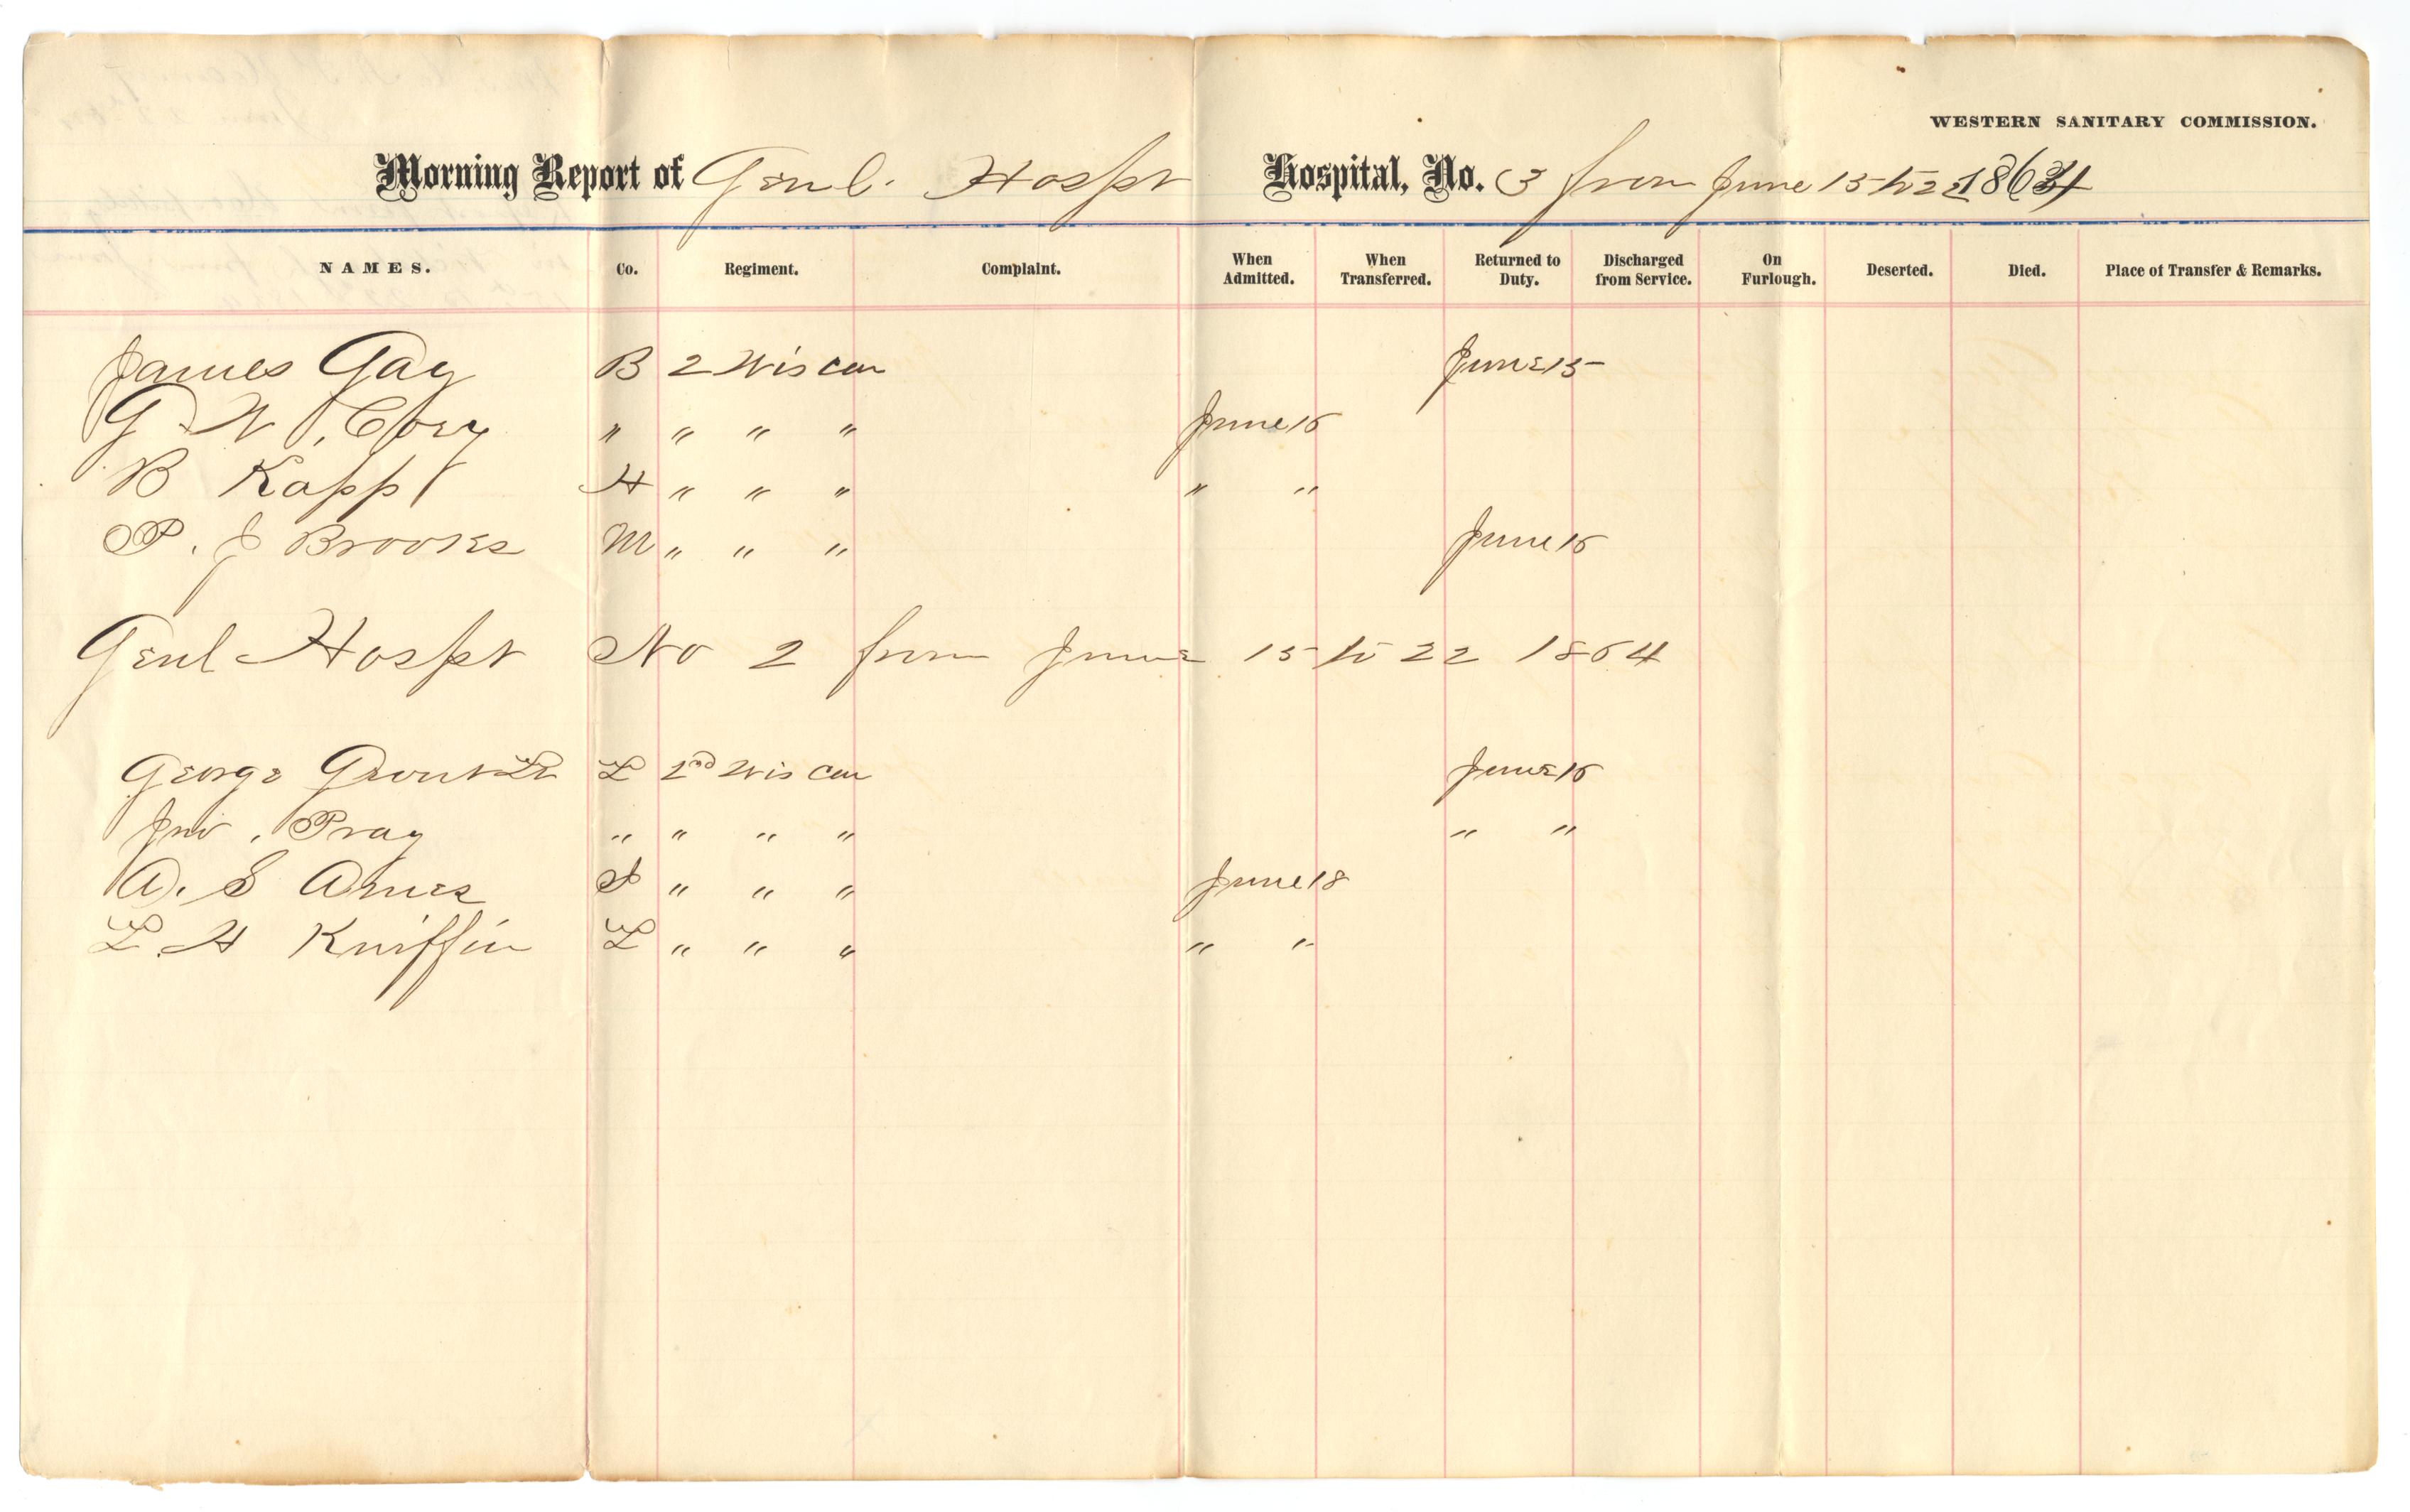 WESTERN SANITARY COMMISSION.
Morning Report of Genl. Hospt Hospital, No. 3 from June 15 to 22 1864
NAMES. Co. Regiment. Complaint. When Admitted. When Transferred. Returned to Duty. Discharged from Service. On Furlough. Deserted. Died. Place of Transfer & Remarks.
James Gay B 2 Wis Cav June 15
G W. Cory " " " " June 16
B Kapp H " " " " "
P. J Brooks M " " " June 16
Genl Hospt No 2 from June 15 to 22 1864
George L 2nd Wis Cav June 16
Jno. Pray " " " " " "
A. S Ames I " " " June 18
L. H Kniffin L " " " " "